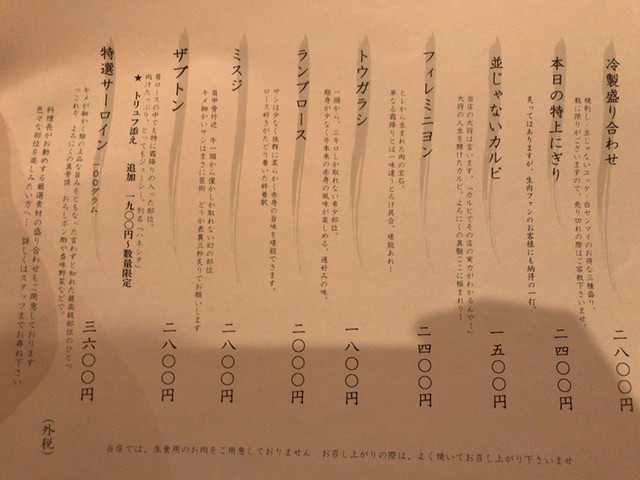 冷製盛り合わせ
焼刺し、生じゃないユッケ、白センマイのお得な三種盛り。
数に限りがございますので、売り切れの際はご容赦下さいませ。
二八〇〇円
本日の特上にぎり
炙ってはありますが、生肉ファンのお客様にも納得の一打。
二四〇〇円
並じゃないカルビ
当店の大将は言います。「カルビでその店の実力がわかるんや！」
大将の人生を賭けたカルビ。よろにくの真髄ここに極まれり！
一五〇〇円
フィレミニヨン
ヒレから生まれた肉の宝石。
単なる霜降りとは一味違うとろけ具合。堪能あれ！
二四〇〇円
トウガラシ
一頭から、二キロしか取れない希少部位。
脂身が少なく牛本来の赤身の風味が楽しめる、通好みの味。
一八〇〇円
ランブロース
サシは少なく抜群に柔らかく赤身の旨味を堪能できます。
ロース好きがたどり着いた終着駅。
二〇〇〇円
ミスジ
肩甲骨付近 牛一頭から僅かしか取れない幻の部位
キメ細かいサシはまさに芸術 どうか表裏三秒炙りでお願いします
二八〇〇円
ザブトン
肩ロースの中でも特に霜降りの入った部位。
肉汁たっぷり、とってもジューシー。別名「ハネシタ」
★ トリュフ添え 追加 一九〇〇円～数量限定
二八〇〇円
特選サーロイン 一〇〇グラム
キメが細かく脂の上品な旨みをともなった言わずと知れた最高級部位のひとつ
"これぞ、よろにくの真骨頂 おろしポン酢や香味野菜などで。
三六〇〇円
料理長がお勧めする厳選素材の盛り合わせもご用意しております
色々な部位を楽しみたい方へ… 詳しくはスタッフまでお尋ね下さい
（外税）
当店では、生食用のお肉をご用意しておりません お召し上がりの際は、よく焼いてお召し上がり下さいませ